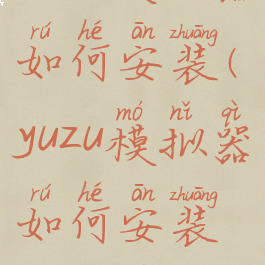 rú hé ān zhuāng
如何安装(
mó nǐ qì
yuzu模拟器
rú hé ān zhuāng
如何安装